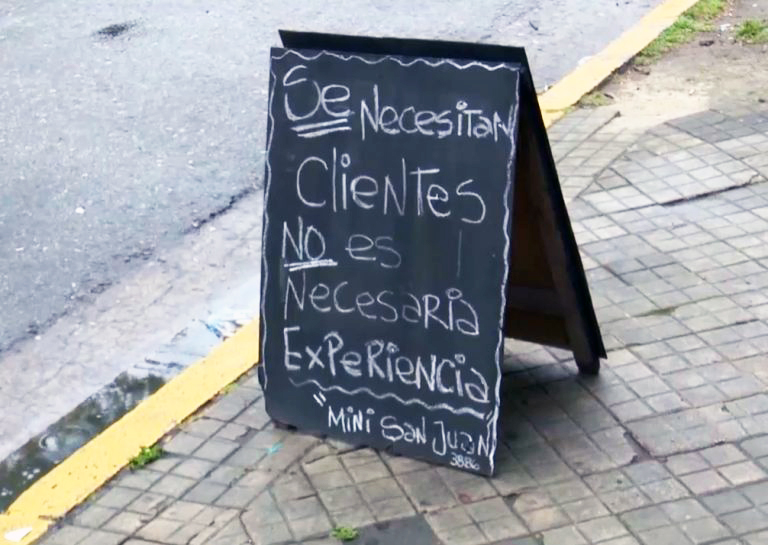 Se Necesitan
Clientes
NO es
Necesaria
Experiencia
"Mini San Juan
3886